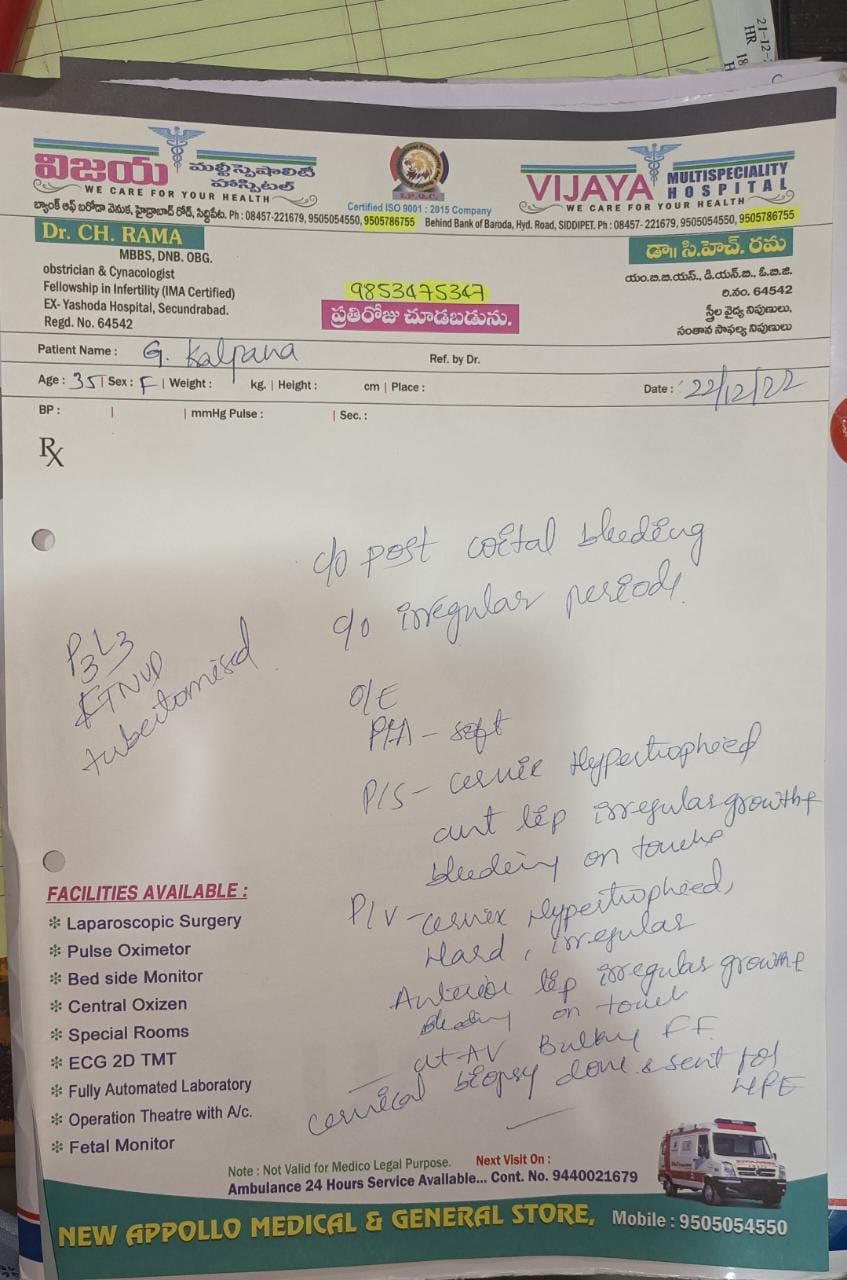 21-12-
HR 18
విజయ మల్టీస్పెషాలిటీ హాస్పిటల్
WE CARE FOR YOUR HEALTH
బ్యాంక్ ఆఫ్ బరోడా వెనుక, హైద్రాబాద్ రోడ్, సిద్దిపేట. Ph : 08457-221679, 9505054550, 9505786755
I.P.Q.C.
Certified ISO 9001 : 2015 Company
VIJAYA MULTISPECIALITY HOSPITAL
WE CARE FOR YOUR HEALTH
Behind Bank of Baroda, Hyd. Road, SIDDIPET. Ph : 08457- 221679, 9505054550, 9505786755
Dr. CH. RAMA
MBBS, DNB. OBG.
obstrician & Cynacologist
Fellowship in Infertility (IMA Certified)
EX- Yashoda Hospital, Secundrabad.
Regd. No. 64542
9853475347
ప్రతిరోజు చూడబడును.
డా॥ సి.హెచ్. రమ
యం.బి.బి.యస్., డి.యన్.బి., ఓ.బి.జి.
రి.నం. 64542
స్త్రీల వైద్య నిపుణులు,
సంతాన సాఫల్య నిపుణులు
Patient Name : G. Kalpana Ref. by Dr.
Age : 35 | Sex : F | Weight : kg. | Height : cm | Place : Date : 22/12/22
BP : | | mmHg Pulse : | Sec. :
Rx
c/o post coital bleeding
c/o irregular periods.
P3L3
FTNVD
tubectomised
O/E
P/A - soft
P/S - cervix Hypertrophied
ant lip irregular growth+
bleeding on touch+
P/V - cervix Hypertrophied,
Hard, irregular
Anterior lip irregular growth+
bleeding on touch
ut-AV Bulky FF.
cervical biopsy done & sent for
HPE
FACILITIES AVAILABLE :
❇ Laparoscopic Surgery
❇ Pulse Oximetor
❇ Bed side Monitor
❇ Central Oxizen
❇ Special Rooms
❇ ECG 2D TMT
❇ Fully Automated Laboratory
❇ Operation Theatre with A/c.
❇ Fetal Monitor
Note : Not Valid for Medico Legal Purpose. Next Visit On :
Ambulance 24 Hours Service Available... Cont. No. 9440021679
NEW APPOLLO MEDICAL & GENERAL STORE, Mobile : 9505054550